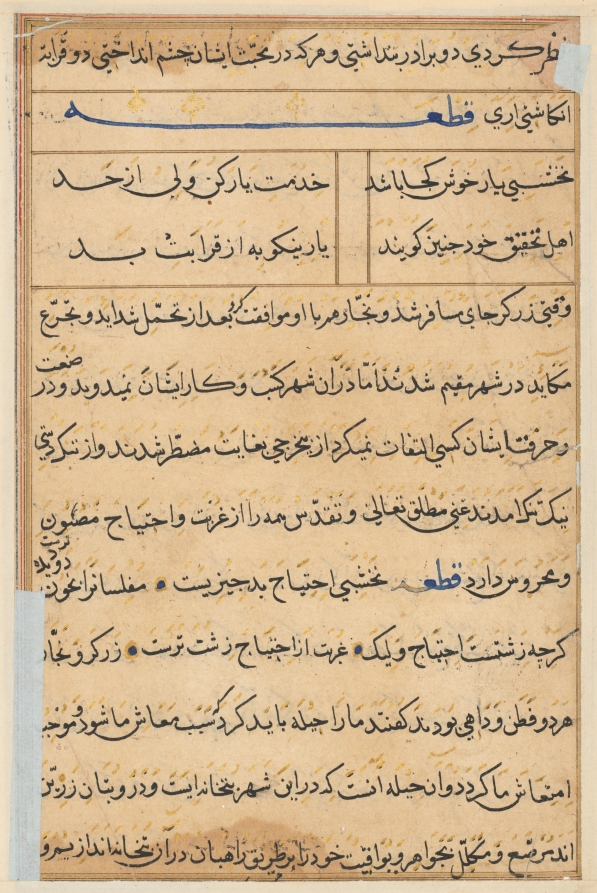 نظر کردی دو برادر پنداشتی و هر که در محبت ایشان چشم انداختی دو قرابه
انکاشتی اری قطعه
نخشبی یار خوش کجا باشد خدمت یار کن ولی از حد
اهل تحقیق خود جنین کویند یار نیکو به از قرابت بد
وقتی زرکر جای مسافر شد و نجار هم با او موافقت کرد بعد از تحمل شداید و تجرع
مکاید در شهر مقیم شدند اما دران شهر کسب و کار ایشان نمیدوید و در صنعت
و حرفت ایشان کسی التفات نمیکرد از بیخرجی بغایت مضطر شدند و از تنک دستی
نیک تنک امدند غنی مطلق تعالی و تقدس همه را از غربت و احتیاج مصئون
و محروس دارد قطعه نخشبی احتیاج بد جیزیست مفلسانرا بخون دو دیده
کرچه زشتست احتیاج ولیک غربت از احتیاج زشت ترست زرکر و نجار
هر دو فطن و داهی بودند کفتند ما را حیله باید کرد که سبب معاش ما شود و موجب
امتعاش ما کردد و ان حیله انست که دراین شهر بتخانه ایست و درو بتان زرین
اند مرصع و مکلل بجواهر و یواقیت خود را بر طریق راهبان در از بتخانه اندازیم و